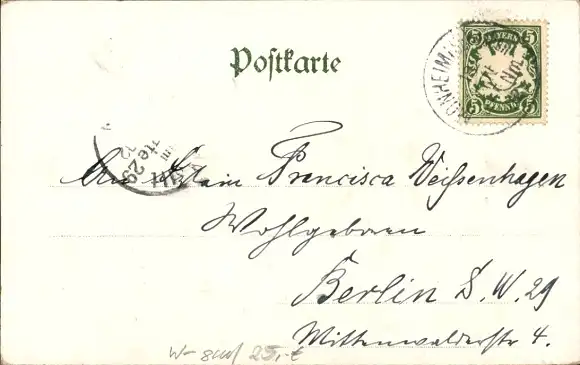 Postkarte
BAYERN
5 5
PFENNIG
5 5
An Fräulein Francisca Weißenhagen
Wohlgeboren
Berlin S. W. 29
Mittenwalderstr 4.
25,-€